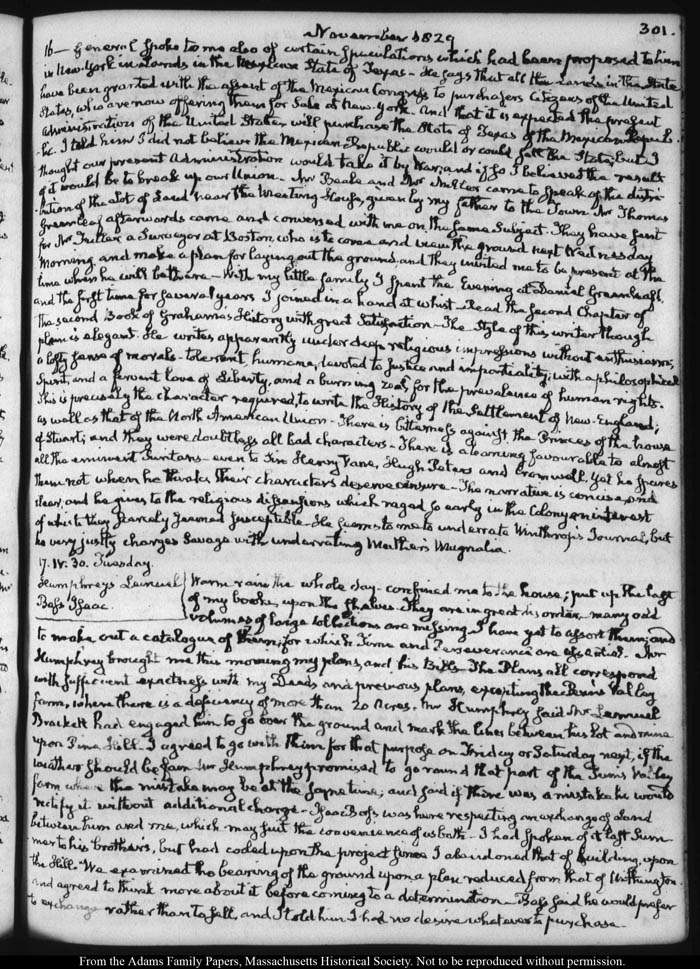 301.
November 1829
16— General spoke to me also of certain speculations which had been proposed to him
in New-York in Lands in the Mexican State of Texas— He says that all the Lands in the State
have been granted with the assent of the Mexican Congress to purchasers Citizens of the United
States, who are now offering them for Sale at New-York. And that it is expected the present
Administration of the United States will purchase the State of Texas of the Mexican Repub-
-lic. I told him I did not believe the Mexican Republic would or could sell the State, but I
thought our present Administration would take it by War; and if so I believed the result
of it would be to break up our Union— Mr Beale and Mr Miller came to speak of the distri-
bution of the Lot of Land near the Meeting House, given by my father to the Town. Mr Thomas
Greenleaf afterwards came and conversed with me on the same Subject. They have sent
for Mr Fuller a Surveyor at Boston, who is to come and view the ground next Wednesday
Morning, and make a plan for laying out the ground, and they invited me to be present at the
time when he will be there— With my little family I spent the Evening at Daniel Greenleaf's
and the first time for several years I joined in a hand at whist— Read the second Chapter of
the second Book of Grahame's History with great Satisfaction— The Style of this writer though
plain is elegant. He writes apparently under deep religious impressions without enthusiasm;
a lofty sense of morals— tolerant, humane, devoted to Justice and impartiality; with a philosophical
Spirit, and a fervent love of Liberty, and a burning zeal for the prevalence of human rights.
This is precisely the character required, to write the History of the Settlement of New-England;
as well as that of the North American Union— There is bitterness against the Princes of the house
of Stuart; and they were doubtless all bad characters— There is a leaning favourable to almost
all the eminent Puritans— even to Sir Henry Vane, Hugh Peters and Cromwell. Yet he spares
them not when he thinks their characters deserve censure— The narrative is concise, and
clear, and he gives to the religious dissensions which raged so early in the Colony an interest
of which they scarcely seemed susceptible— He seems to me to underrate Winthrop's Journal, but
he very justly charges Savage with underrating Mather's Magnalia.
17. IV:30. Tuesday.
Humphreys Lemuel
Bass Isaac
Warm rain the whole day— confined me to the house; put up the last
of my books, upon the shelves. They are in great disorder— many odd
volumes of large collections are missing. I have yet to assort them; and
to make out a catalogue of them; for which Time and Perseverance are essential. Mr
Humphrey brought me this morning my plans, and his Bills— The Plans all correspond
with sufficient exactness with my Deeds and previous plans, excepting the Penn's Valley
farm, where there is a deficiency of more than 20 Acres. Mr Humphrey said Mr Lemuel
Brackett had engaged him to go over the ground and mark the lines between his Lot and mine
upon Pine Hill. I agreed to go with them for that purpose on Friday or Saturday next, if the
weather should be fair. Mr Humphrey promised to go round that part of the Penn's Valley
farm where the mistake may be at the same time; and said if there was a mistake he would
rectify it without additional charge— Isaac Bass was here respecting an exchange of Land
between him and me, which may suit the convenience of us both— I had spoken of it last Sum-
mer to his Brothers, but had cooled upon the project since I abandoned that of building, upon
the Hill. We examined the bearing of the ground upon a plan reduced from that of Withington
and agreed to think more about it before coming to a determination— Bass said he would prefer
to exchange rather than to sell, and I told him I had no desire whatever to purchase—
From the Adams Family Papers, Massachusetts Historical Society. Not to be reproduced without permission.